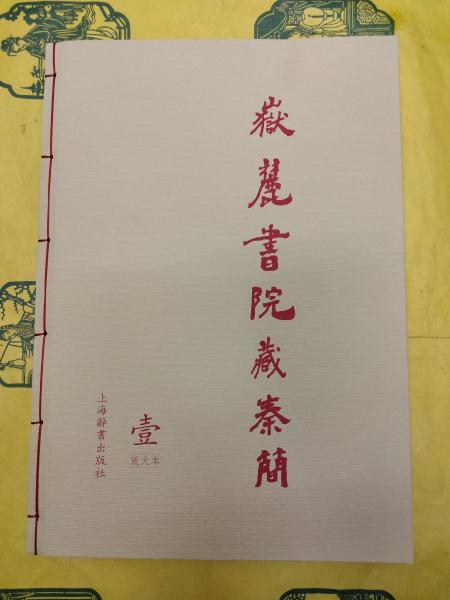 嶽麓書院藏秦簡
壹
放大本
上海辭書出版社